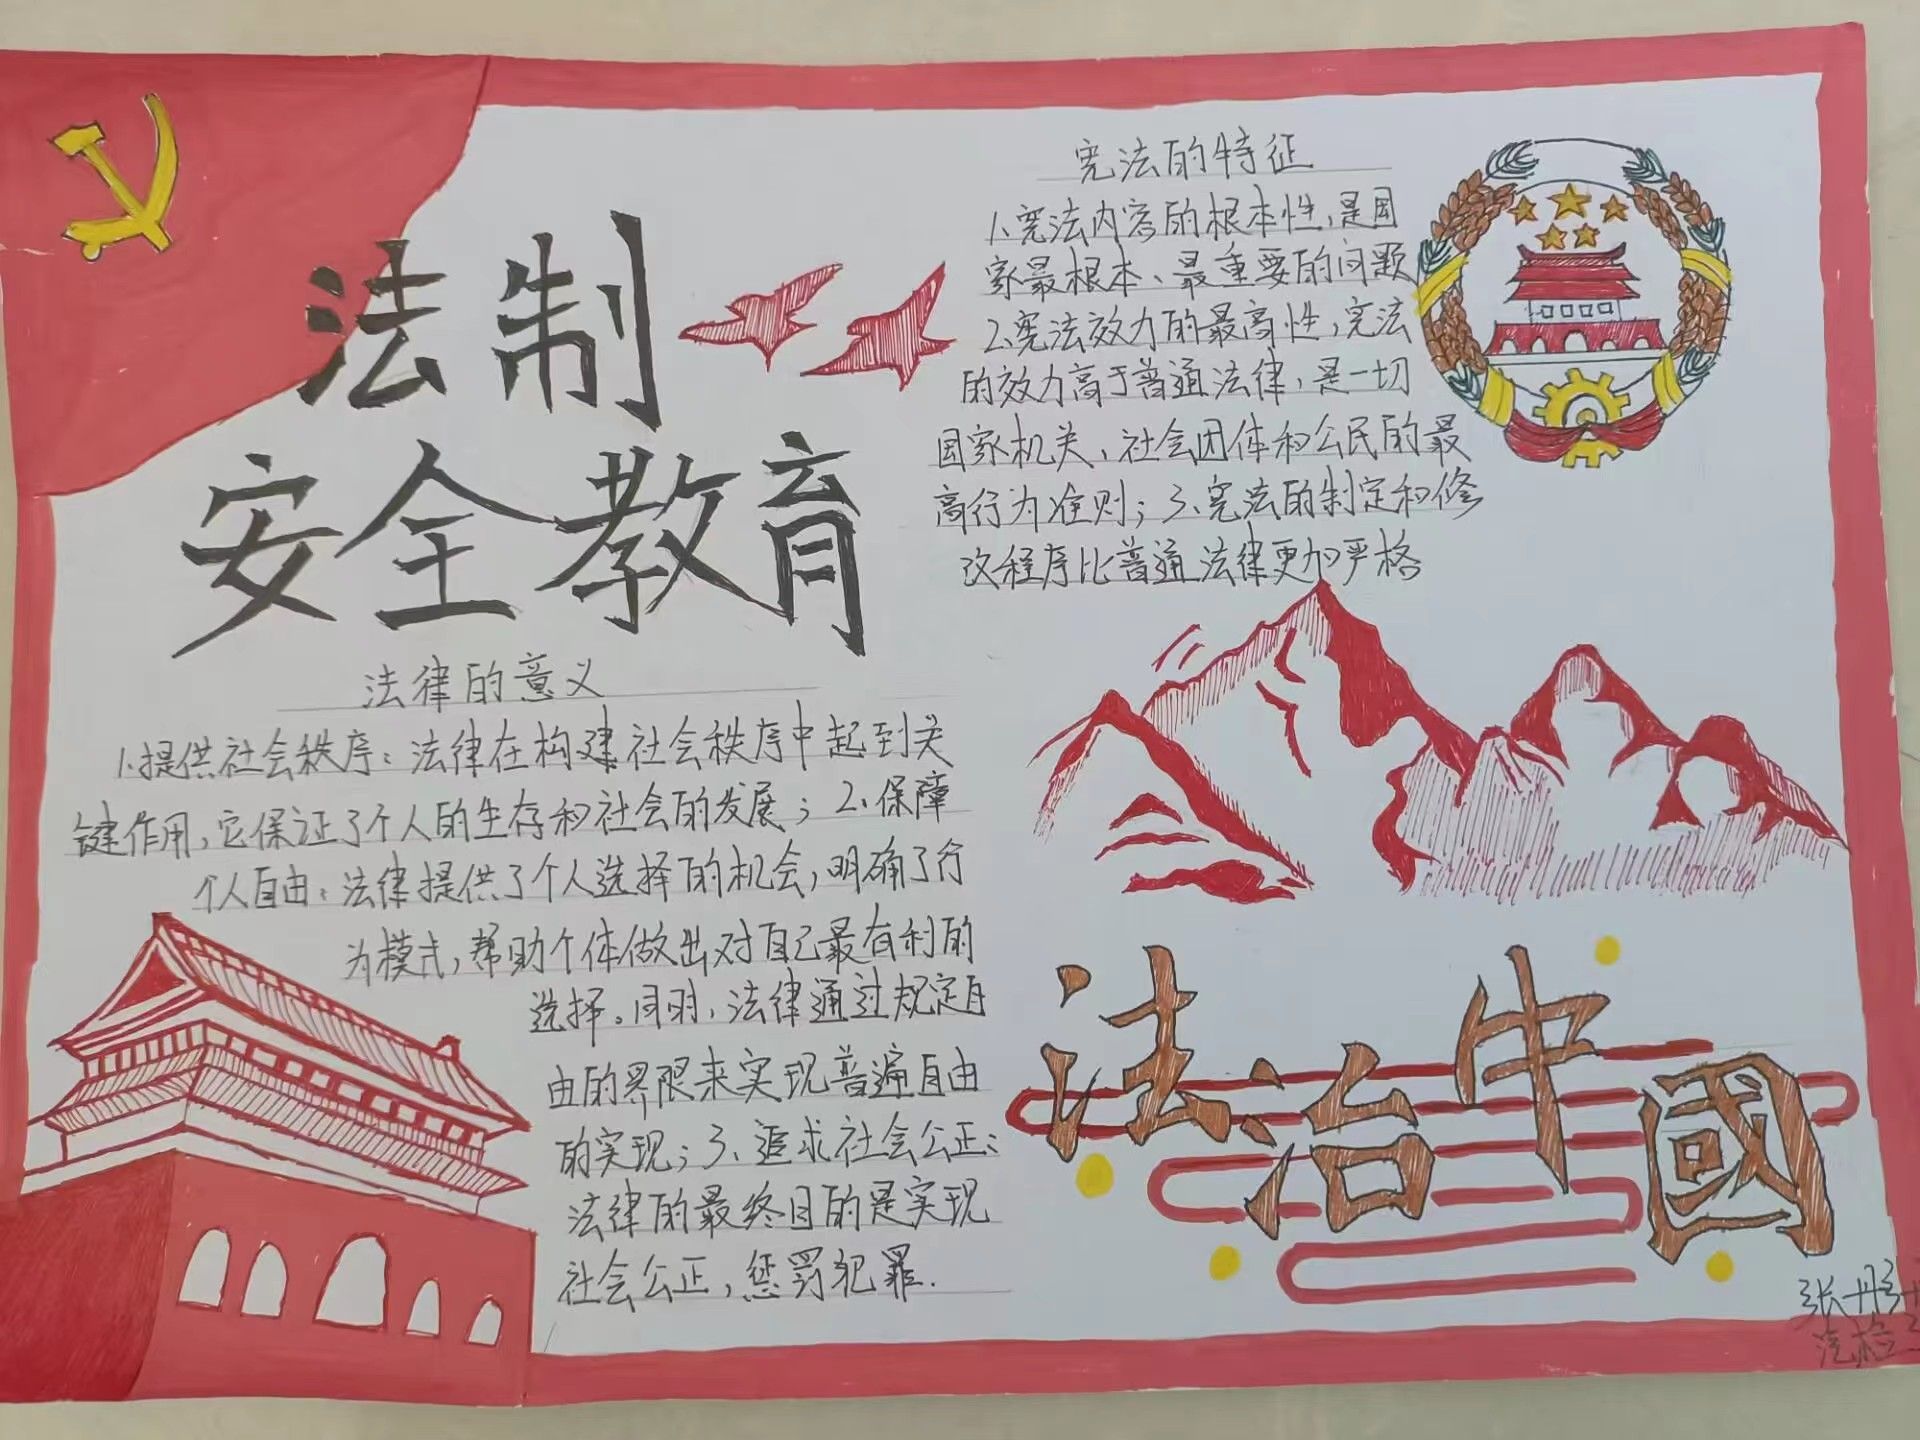 法制
安全教育
法律的意义
1.提供社会秩序：法律在构建社会秩序中起到关
键作用，它保证了个人的生存和社会的发展；2.保障
个人自由：法律提供了个人选择的机会，明确了行
为模式，帮助个体做出对自己最有利的
选择。同时，法律通过规定自
由的界限来实现普遍自由
的实现；3、追求社会公正：
法律的最终目的是实现
社会公正，惩罚犯罪.
宪法的特征
1.宪法内容的根本性，是国
家最根本、最重要的问题
2.宪法效力的最高性，宪法
的效力高于普通法律，是一切
国家机关、社会团体和公民的最
高行为准则；3、宪法的制定和修
改程序比普通法律更加严格
法治中國
张彤
汽检